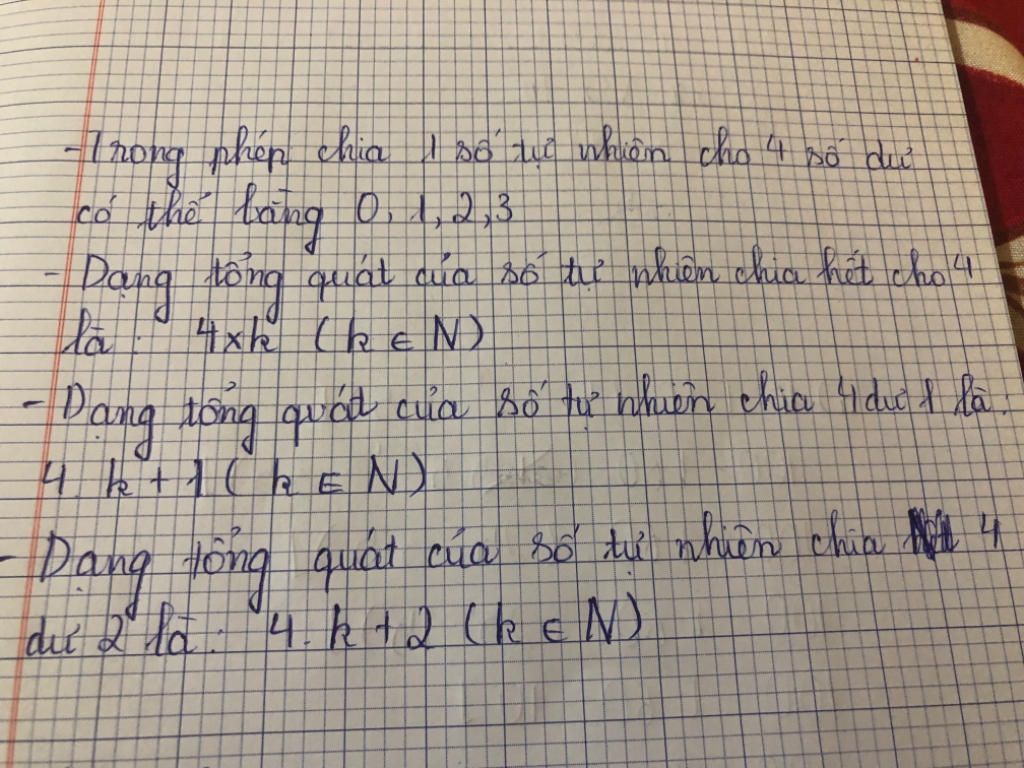 - Trong phép chia 1 số tự nhiên cho 4 số dư
có thể bằng 0, 1, 2, 3
- Dạng tổng quát của số tự nhiên chia hết cho 4
là: 4 x k (k ∈ N)
- Dạng tổng quát của số tự nhiên chia 4 dư 1 là:
4. k + 1 ( k ∈ N)
- Dạng tổng quát của số tự nhiên chia 4
dư 2 là: 4. k + 2 (k ∈ N)